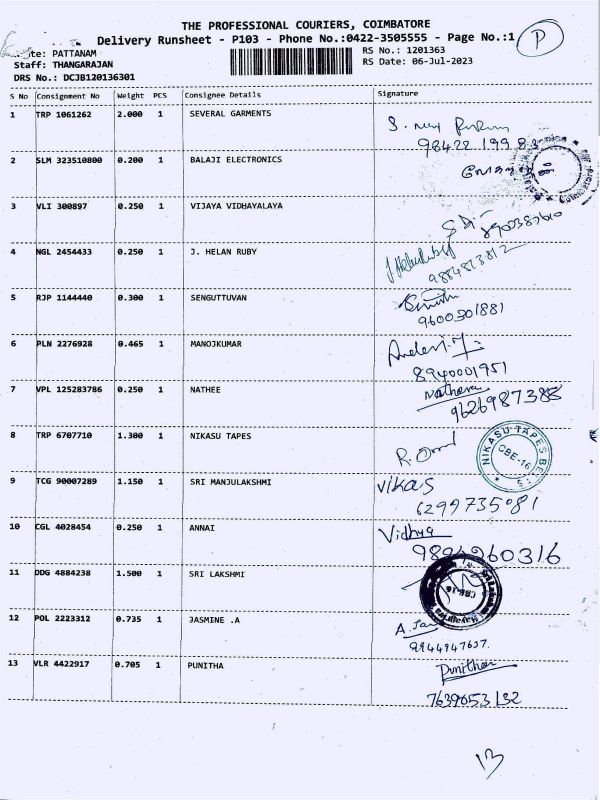 THE PROFESSIONAL COURIERS, COIMBATORE
Delivery Runsheet - P103 - Phone No.:0422-3505555 - Page No.:1
P
te: PATTANAM RS No.: 1201363
Staff: THANGARAJAN RS Date: 06-Jul-2023
DRS No.: DCJB120136301
S No Consignment No Weight PCS Consignee Details Signature
1 TRP 1061262 2.000 1 SEVERAL GARMENTS
98422 199 83
2 SLM 323510800 0.200 1 BALAJI ELECTRONICS
3 VLI 300897 0.250 1 VIJAYA VIDHAYALAYA
4 NGL 2454433 0.250 1 J. HELAN RUBY
9884813812
5 RJP 1144440 0.300 1 SENGUTTUVAN
9600301881
6 PLN 2276928 0.465 1 MANOJKUMAR
8940001951
7 VPL 125283786 0.250 1 NATHEE
Nathera
9626987385
8 TRP 6707710 1.300 1 NIKASU TAPES
NIKASU TAPES BELTS
CBE-16
9 TCG 90007289 1.150 1 SRI MANJULAKSHMI
vikas
6299735081
10 CGL 4028454 0.250 1 ANNAI
Vidhya
9894960316
11 DDG 4884238 1.500 1 SRI LAKSHMI
12 POL 2223312 0.735 1 JASMINE .A
9944947637
13 VLR 4422917 0.705 1 PUNITHA
Punitha
7639053132
13